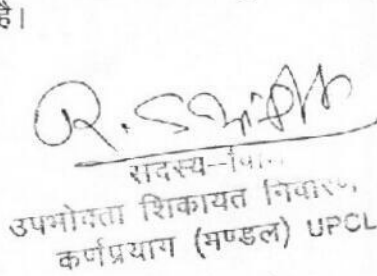 है।
R. S.
सदस्य--
उपभोक्ता शिकायत निवारण,
कर्णप्रयाग (मण्डल) UPCL